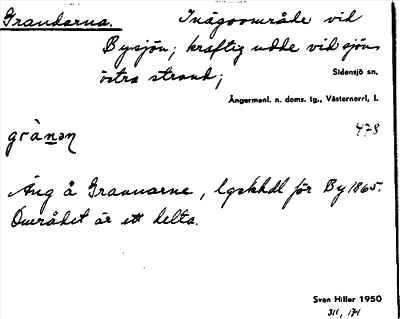 Grandarna. Inägoområde vid
Bysjön; kraftig udde vid sjöns
östra strand;
Sidensjö sn,
Ångermanl. n. doms. tg., Västernorrl. l.
478
grànən
Äng å Grannarne, lgskhdl för By 1865.
Området är ett delta.
Sven Hiller 1950
311, 171